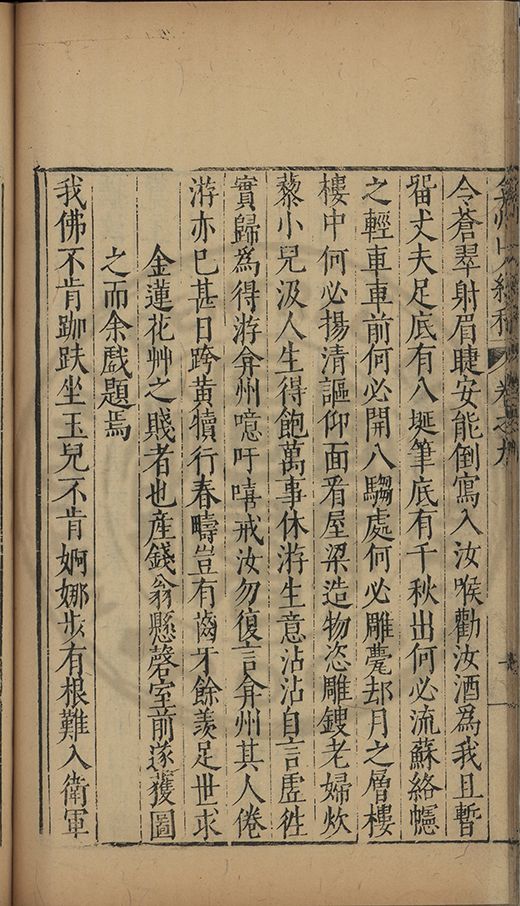 弇州山人續稿 卷之九
令蒼翠射眉睫安能倒寫入汝喉勸汝酒爲我且暫
畱丈夫足底有八埏筆底有千秋出何必流蘇絡幰
之輕車車前何必開八騶處何必雕甍却月之層樓
樓中何必揚清謳仰面看屋梁造物恣雕鎪老婦炊
藜小兒汲人生得飽萬事休游生意沾沾自言虛徃
實歸爲得游弇州噫吁嘻戒汝勿復言弇州其人倦
游亦已甚日跨黃犢行春疇豈有齒牙餘羨足世求
金蓮花艸之賤者也産錢翁懸磬室前遂獲圖
之而余戲題焉
我佛不肯跏趺坐玉兒不肯婀娜步有根難入衛軍